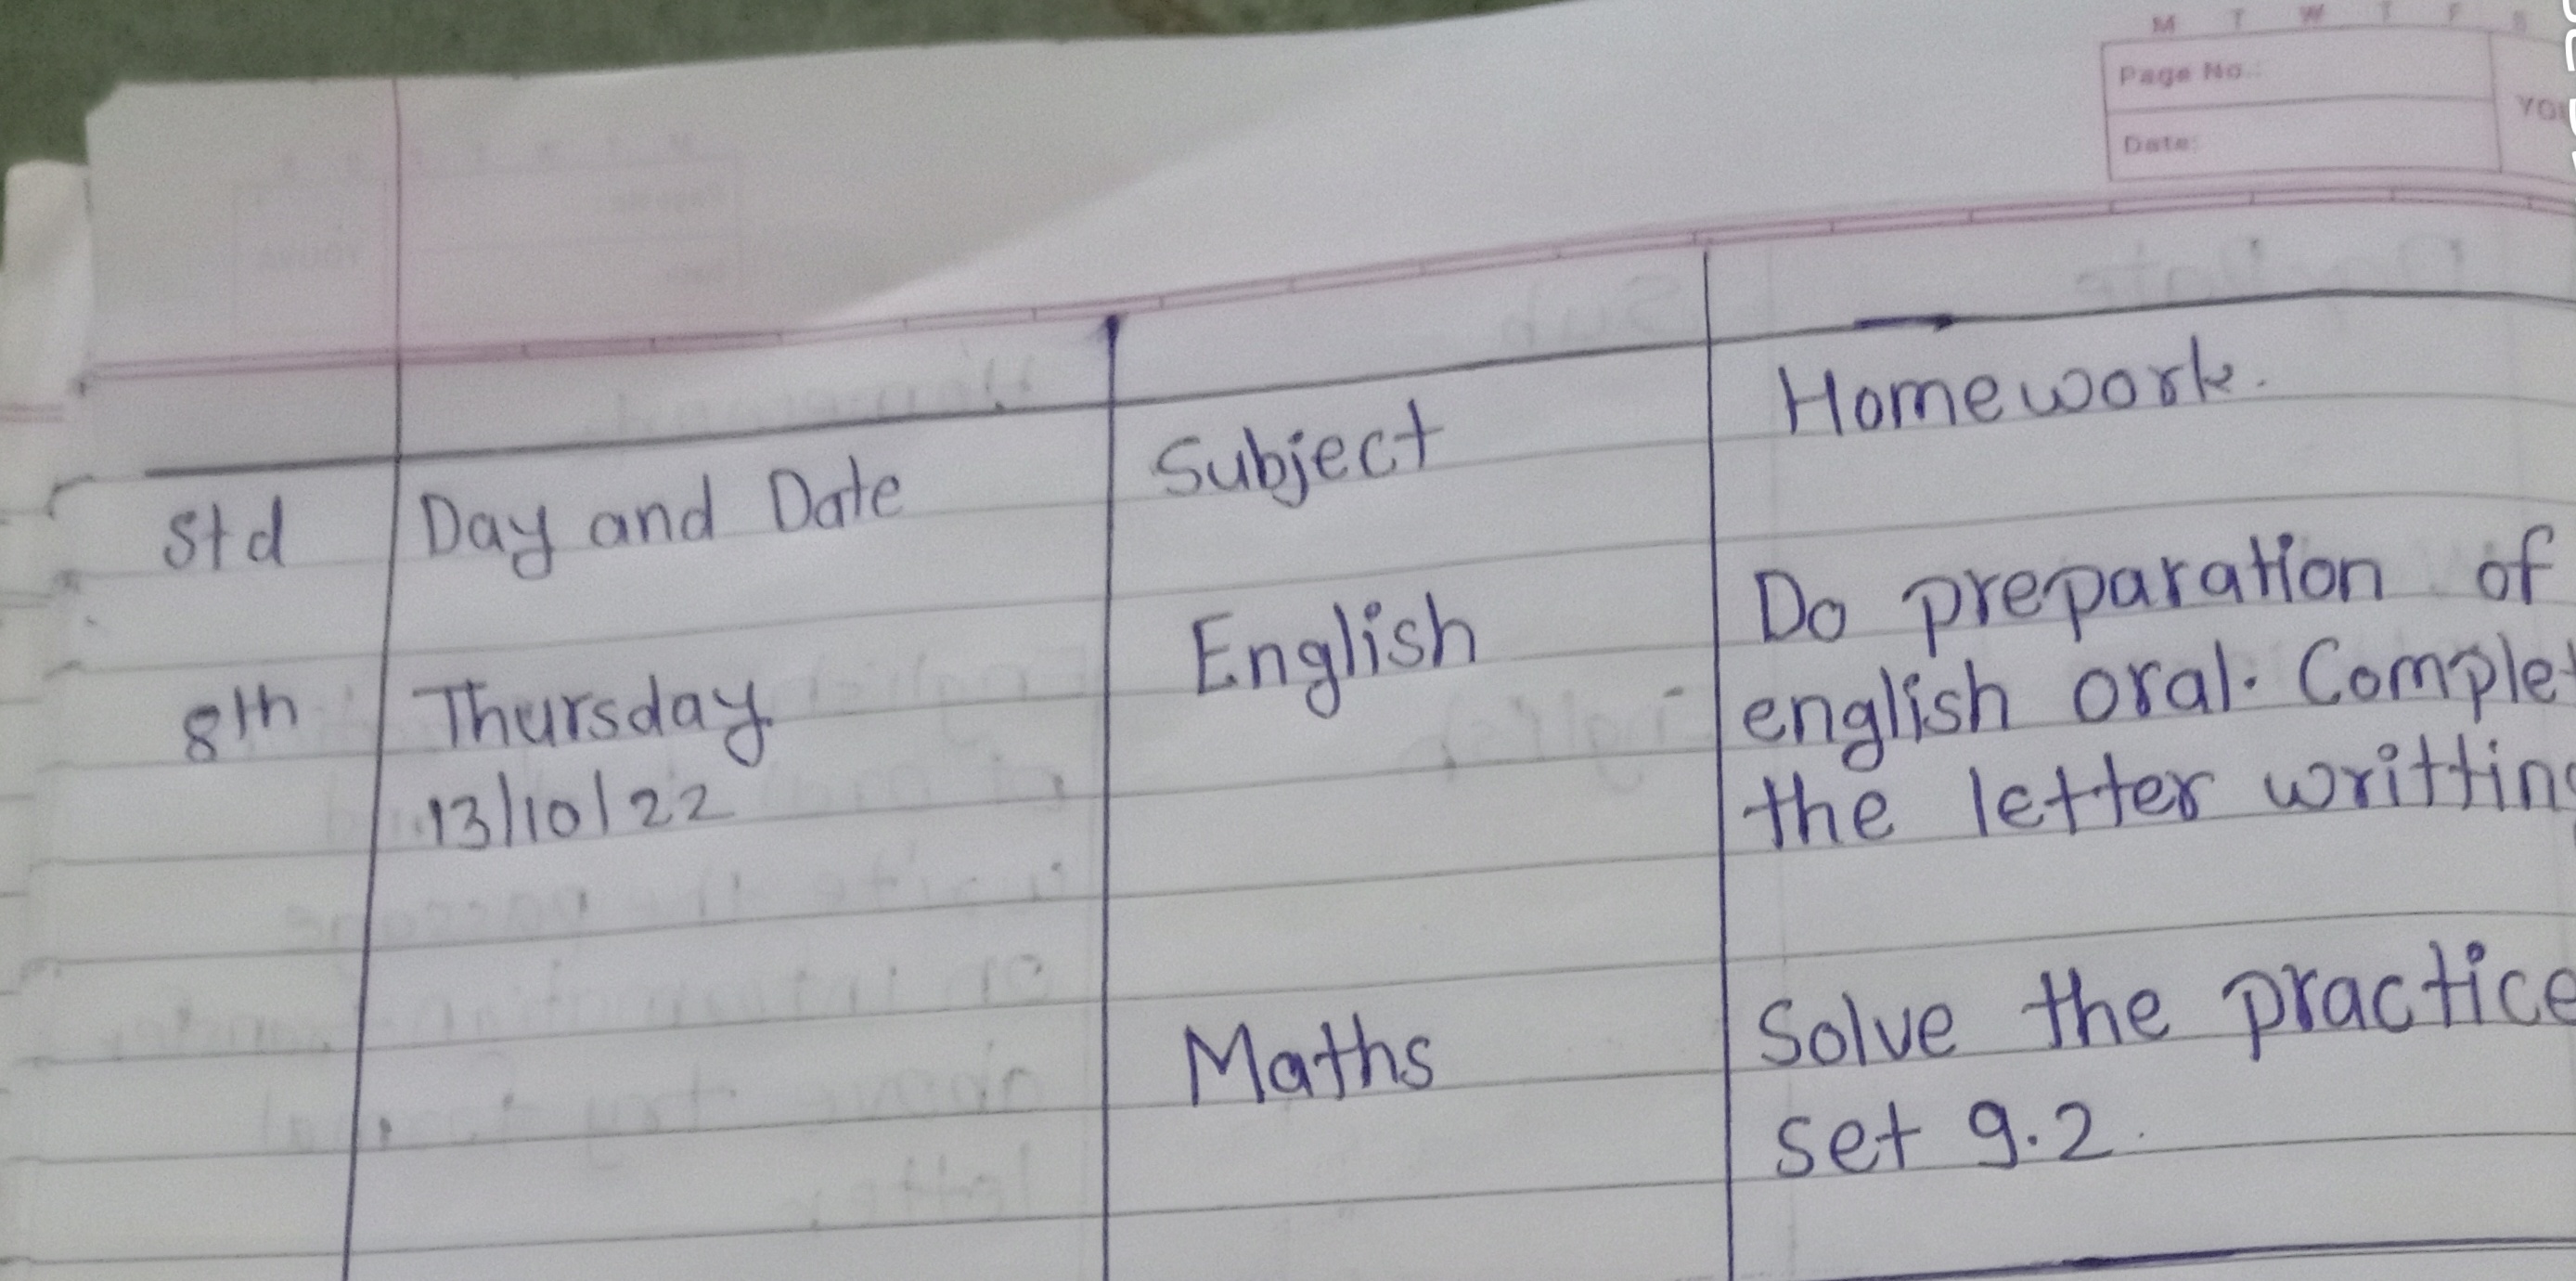 M T W T F S
Page No.:
Date:
Std Day and Date Subject Homework.
8th Thursday English Do preparation of
13/10/22 english oral. Complet
the letter writting
Maths Solve the practice
set 9.2.